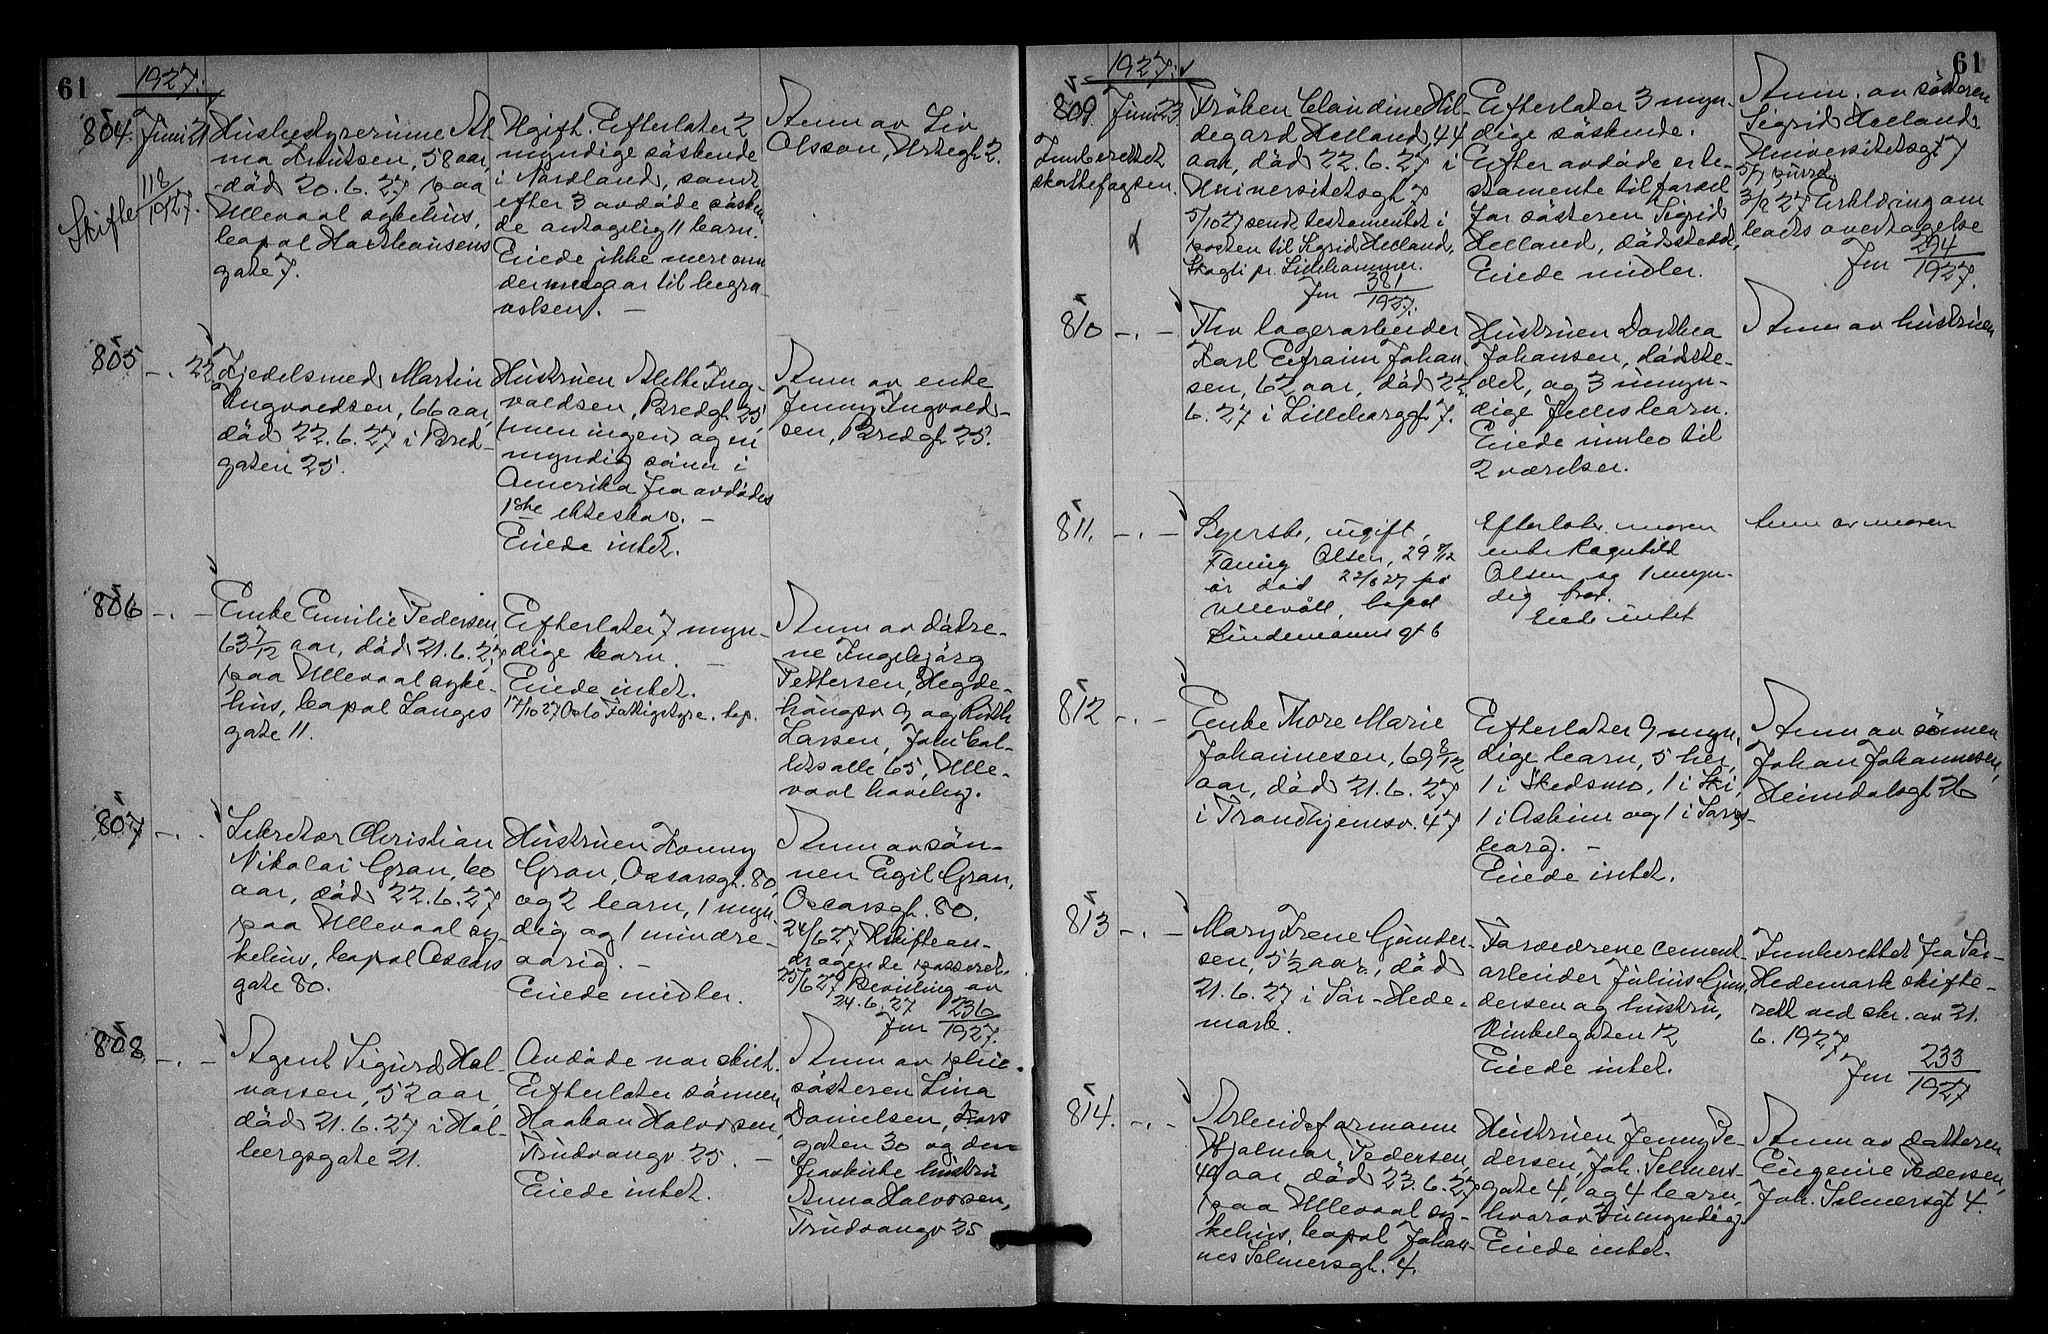 61
1927.
804.
Juni 21
Skifter 118/1927.
Husbestyrerinne Al-
ma Knutsen, 58 aar,
död 20.6.27 paa
Ullevaal sykehus,
bopal Harthausens
gate 7.
Ugift. Efterlater 2
myndige söskende
i Nordland, samt
efter 3 avdöde sösken-
de antagelig 11 barn.
Eiede ikke mere enn
der medgaar til begra-
velsen. —
Anm av Liv
Olsson, Urtegt 2.
805
—. 22
Kjedelsmed Martin
Ingvaldsen, 66 aar,
död 22.6.27 i Bred-
gaten 25.
Hustruen Alette Ing-
valdsen, Bredgt. 25,
(men ingen) og en
myndig sönn i
Amerika fra avdödes
1ste ekteskap. —
Eiede intet.
Anm av enke
Jenny Ingvald-
sen, Bredgt 25.
806
—. —
Enke Emilie Pedersen,
63 7/12 aar, död 21.6.27
paa Ullevaal syke-
hus, bopal Langes
gate 11.
Efterlater 7 myn-
dige barn. —
Eiede intet.
17/10 27 Oslo Fattigstyre. bep.
Anm av dötre-
ne Ingebjörg
Pettersen, Hegde-
haugsv 9 og Ruth
Larsen, John Col-
letsalle 65, Ulle-
vaal haveby.
807
—. .
Sekretær Christian
Nikolai Gran, 60
aar, död 22.6.27
paa Ullevaal sy-
kehus, bopal Oscars
gate 80.
Hustruen Fanny
Gran, Oscarsgt. 80,
og 2 barn, 1 myn-
dig og 1 mindre-
aarig. —
Eiede midler.
Anm av sön-
nen Egil Gran,
Oscarsgt. 80.
24/6 27 Uskiftean-
dragende passeret.
25/6 27 Bevilling av
24.6.27
Jnr 236/1927.
808.
—. —
Agent Sigurd Hal-
vorsen, 52 aar,
död 21.6.27 i Hol-
bergsgate 21.
Avdöde var skilt.
Efterlater sönnen
Haakon Halvorsen,
Trudvangv. 25. —
Eiede intet.
Anm av pleie-
sösteren Lina
Danielsen,
gaten 30 og den
fraskilte hustru
Anna Halvorsen,
Trudvangv 25
61
1927.
809.
Juni 23.
Innberettet
skattefogten.
Fröken Claudine Hil-
degard Helland, 44
aar, död 22.6.27 i
Universitetsgt 7
5/10 27 sendt testamentet i
posten til Sigrid Helland,
Skogli pr. Lillehammer.
Jnr 381/1927.
Efterlater 3 myn-
dige söskende.
Efter avdöde er te-
stamente til fordel
for sösteren Sigrid
Helland, dödsstedet.
Eiede midler.
Anm. av sösteren
Sigrid Helland
Universitetsgt 7
5/7 purret.
3/9 27 Erklæring om
boets overtagelse
Jnr 294/1927.
810
—. —
Fhv lagerarbeider
Karl Efraim Johan-
sen, 62 aar, död 22.
6.27 i Lilleborggt 7.
Hustruen Dorthea
Johansen, dödsste-
det, og 3 umyn-
dige felles barn.
Eiede innbo til
2 værelser.
Anm av hustruen
811.
—. —
Syerske, ugift,
Fanny Olsen, 29 9/12
år död 22/6 27 på
Ullevåll, bopal
Lindemanns gt 6
Efterlater moren
enke Ragnhild
Olsen og 1 myn-
dig bror.
Eiede intet
Anm av moren
812
—. —
Enke Thore Marie
Johannesen, 69 8/12
aar, död 21.6.27
i Trondhjemsv. 47
Efterlater 9 myn-
dige barn, 5 her,
1 i Skedsmo, 1 i Ski,
1 i Askim og 1 i Sarps-
borg. —
Eiede intet.
Anm av sönnen
Johan Johannesen,
Heimdalsgt 26
813
—. —
Mary Irene Gunder-
sen, 5 1/2 aar, död
21.6.27 i Sör-Hede-
mark.
Forældrene cement-
arbeider Julius Gun-
dersen og hustru,
Vinkelgaten 12
Eiede intet.
Innberettet fra Sör-
Hedemark skifte-
rett ved skr. av 21.
6.1927
Jnr 233/1927
814.
—. —
Arbeidsformann
Hjalmar Pedersen,
49 aar, död 23.6.27
paa Ullevaal sy-
kehus, bopal Johan-
nes Selmersgt. 4.
Hustruen Jenny Pe-
dersen, Joh. Selmers-
gate 4, og 4 barn,
hvorav 3 umyndig.
Eiede intet.
Anm av datteren
Eugenie Pedersen,
Joh. Selmersgt 4.